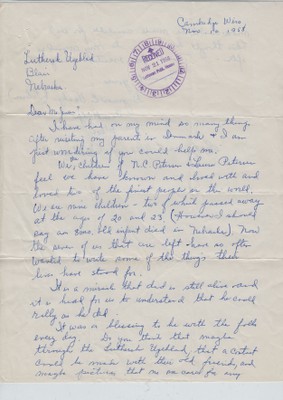 Cambridge, Wis
Nov. 20, 1958
Lutheran Ugeblad
Blair
Nebraska
RECEIVED
NOV 21 1958
Dear Mr. Jensen:
I have had on my mind so many things
after visiting my parents in Denmark & I am
just wondering if you could help me.
We, children of N.C. Petersen & Laura Petersen
feel we have known and lived with and
loved two of the finest people in the world.
We are nine children - two of which passed away
at the age of 20 and 23. (Pardon I should
say an one, old infant died in Nebraska). Now
the seven of us that are left have so often
wanted to write some of the things their
lives have stood for.
It is a miracle that dad is still alive and
it is hard for us to understand that he could
rally as he did.
It was a blessing to be with the folks
every day. Do you think that maybe
through the Lutheran Ugeblad, that a contact
could be made with their old friends, and
maybe pastures that no one cares for any